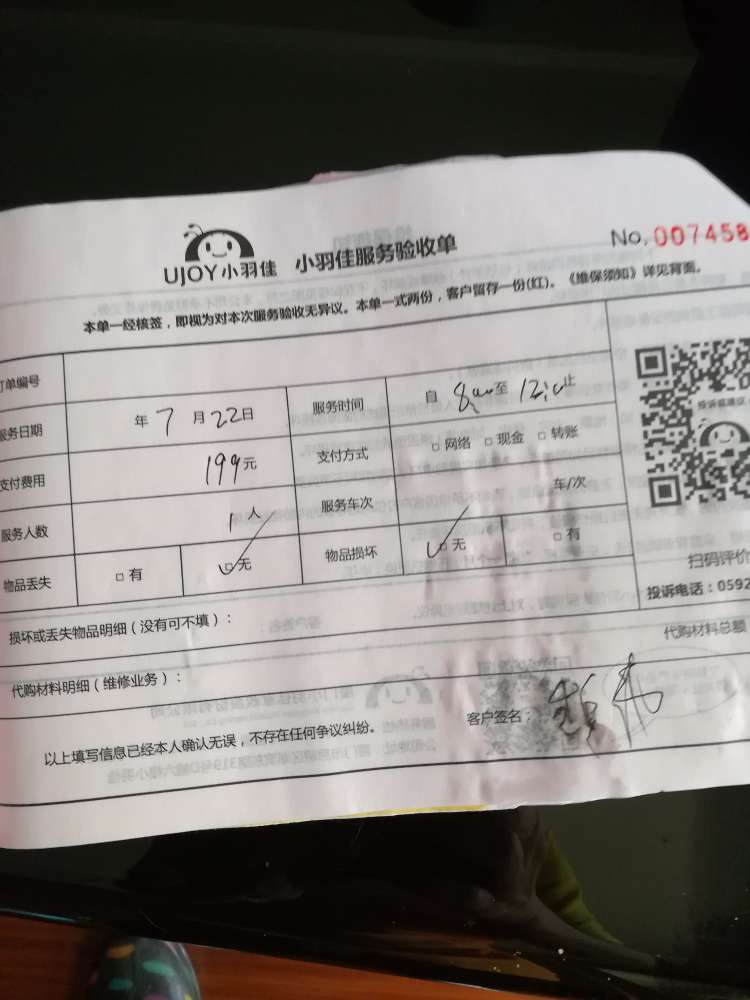 UJOY小羽佳 小羽佳服务验收单 No. 007458
本单一经核签，即视为对本次服务验收无异议。本单一式两份，客户留存一份(红)。《维保须知》详见背面。
订单编号
服务日期 年 7 月 22 日 服务时间 自 至 止
支付费用 199元 支付方式 □ 网络 □ 现金 □ 转账
服务人数 1 人 服务车次 车/次
物品丢失 □ 有 □ 无 物品损坏 □ 无 □ 有
扫码评价
投诉电话：0592
损坏或丢失物品明细（没有可不填）：
代购材料明细（维修业务）： 代购材料总额
以上填写信息已经本人确认无误，不存在任何争议纠纷。 客户签名：